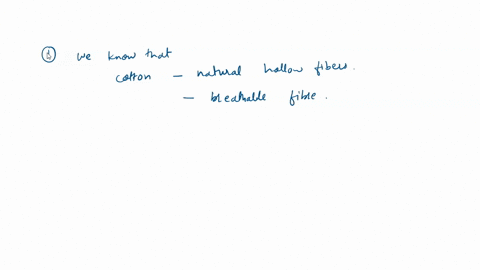 ① We know that
cotton – natural hollow fibers.
– breathable fible.